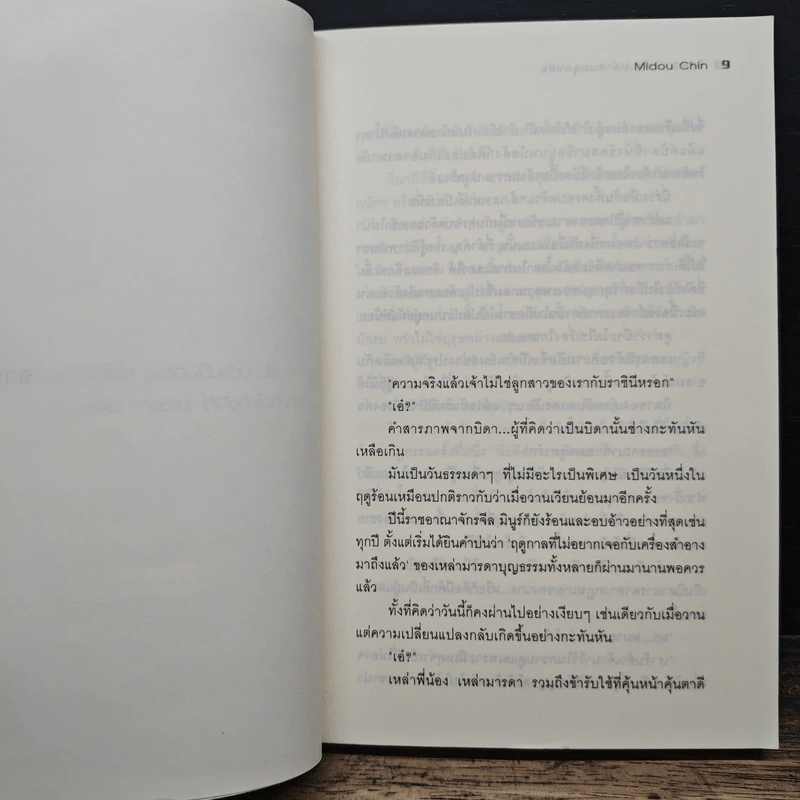 Midou Chin 9
"ความจริงแล้วเจ้าไม่ใช่ลูกสาวของเรากับราชินีหรอก"
"เอ๋?"
คำสารภาพจากบิดา...ผู้ที่คิดว่าเป็นบิดานั้นช่างกะทันหัน
เหลือเกิน
มันเป็นวันธรรมดาๆ ที่ไม่มีอะไรเป็นพิเศษ เป็นวันหนึ่งใน
ฤดูร้อนเหมือนปกติราวกับว่าเมื่อวานเวียนย้อนมาอีกครั้ง
ปีนี้ราชอาณาจักรจีล มินูร์ก็ยังร้อนและอบอ้าวอย่างที่สุดเช่น
ทุกปี ตั้งแต่เริ่มได้ยินคำบ่นว่า 'ฤดูกาลที่ไม่อยากเจอกับเครื่องสำอาง
มาถึงแล้ว' ของเหล่ามารดาบุญธรรมทั้งหลายก็ผ่านมานานพอควร
แล้ว
ทั้งที่คิดว่าวันนี้ก็คงผ่านไปอย่างเงียบๆ เช่นเดียวกับเมื่อวาน
แต่ความเปลี่ยนแปลงกลับเกิดขึ้นอย่างกะทันหัน
"เอ๋?"
เหล่าพี่น้อง เหล่ามารดา รวมถึงข้ารับใช้ที่คุ้นหน้าคุ้นตาดี